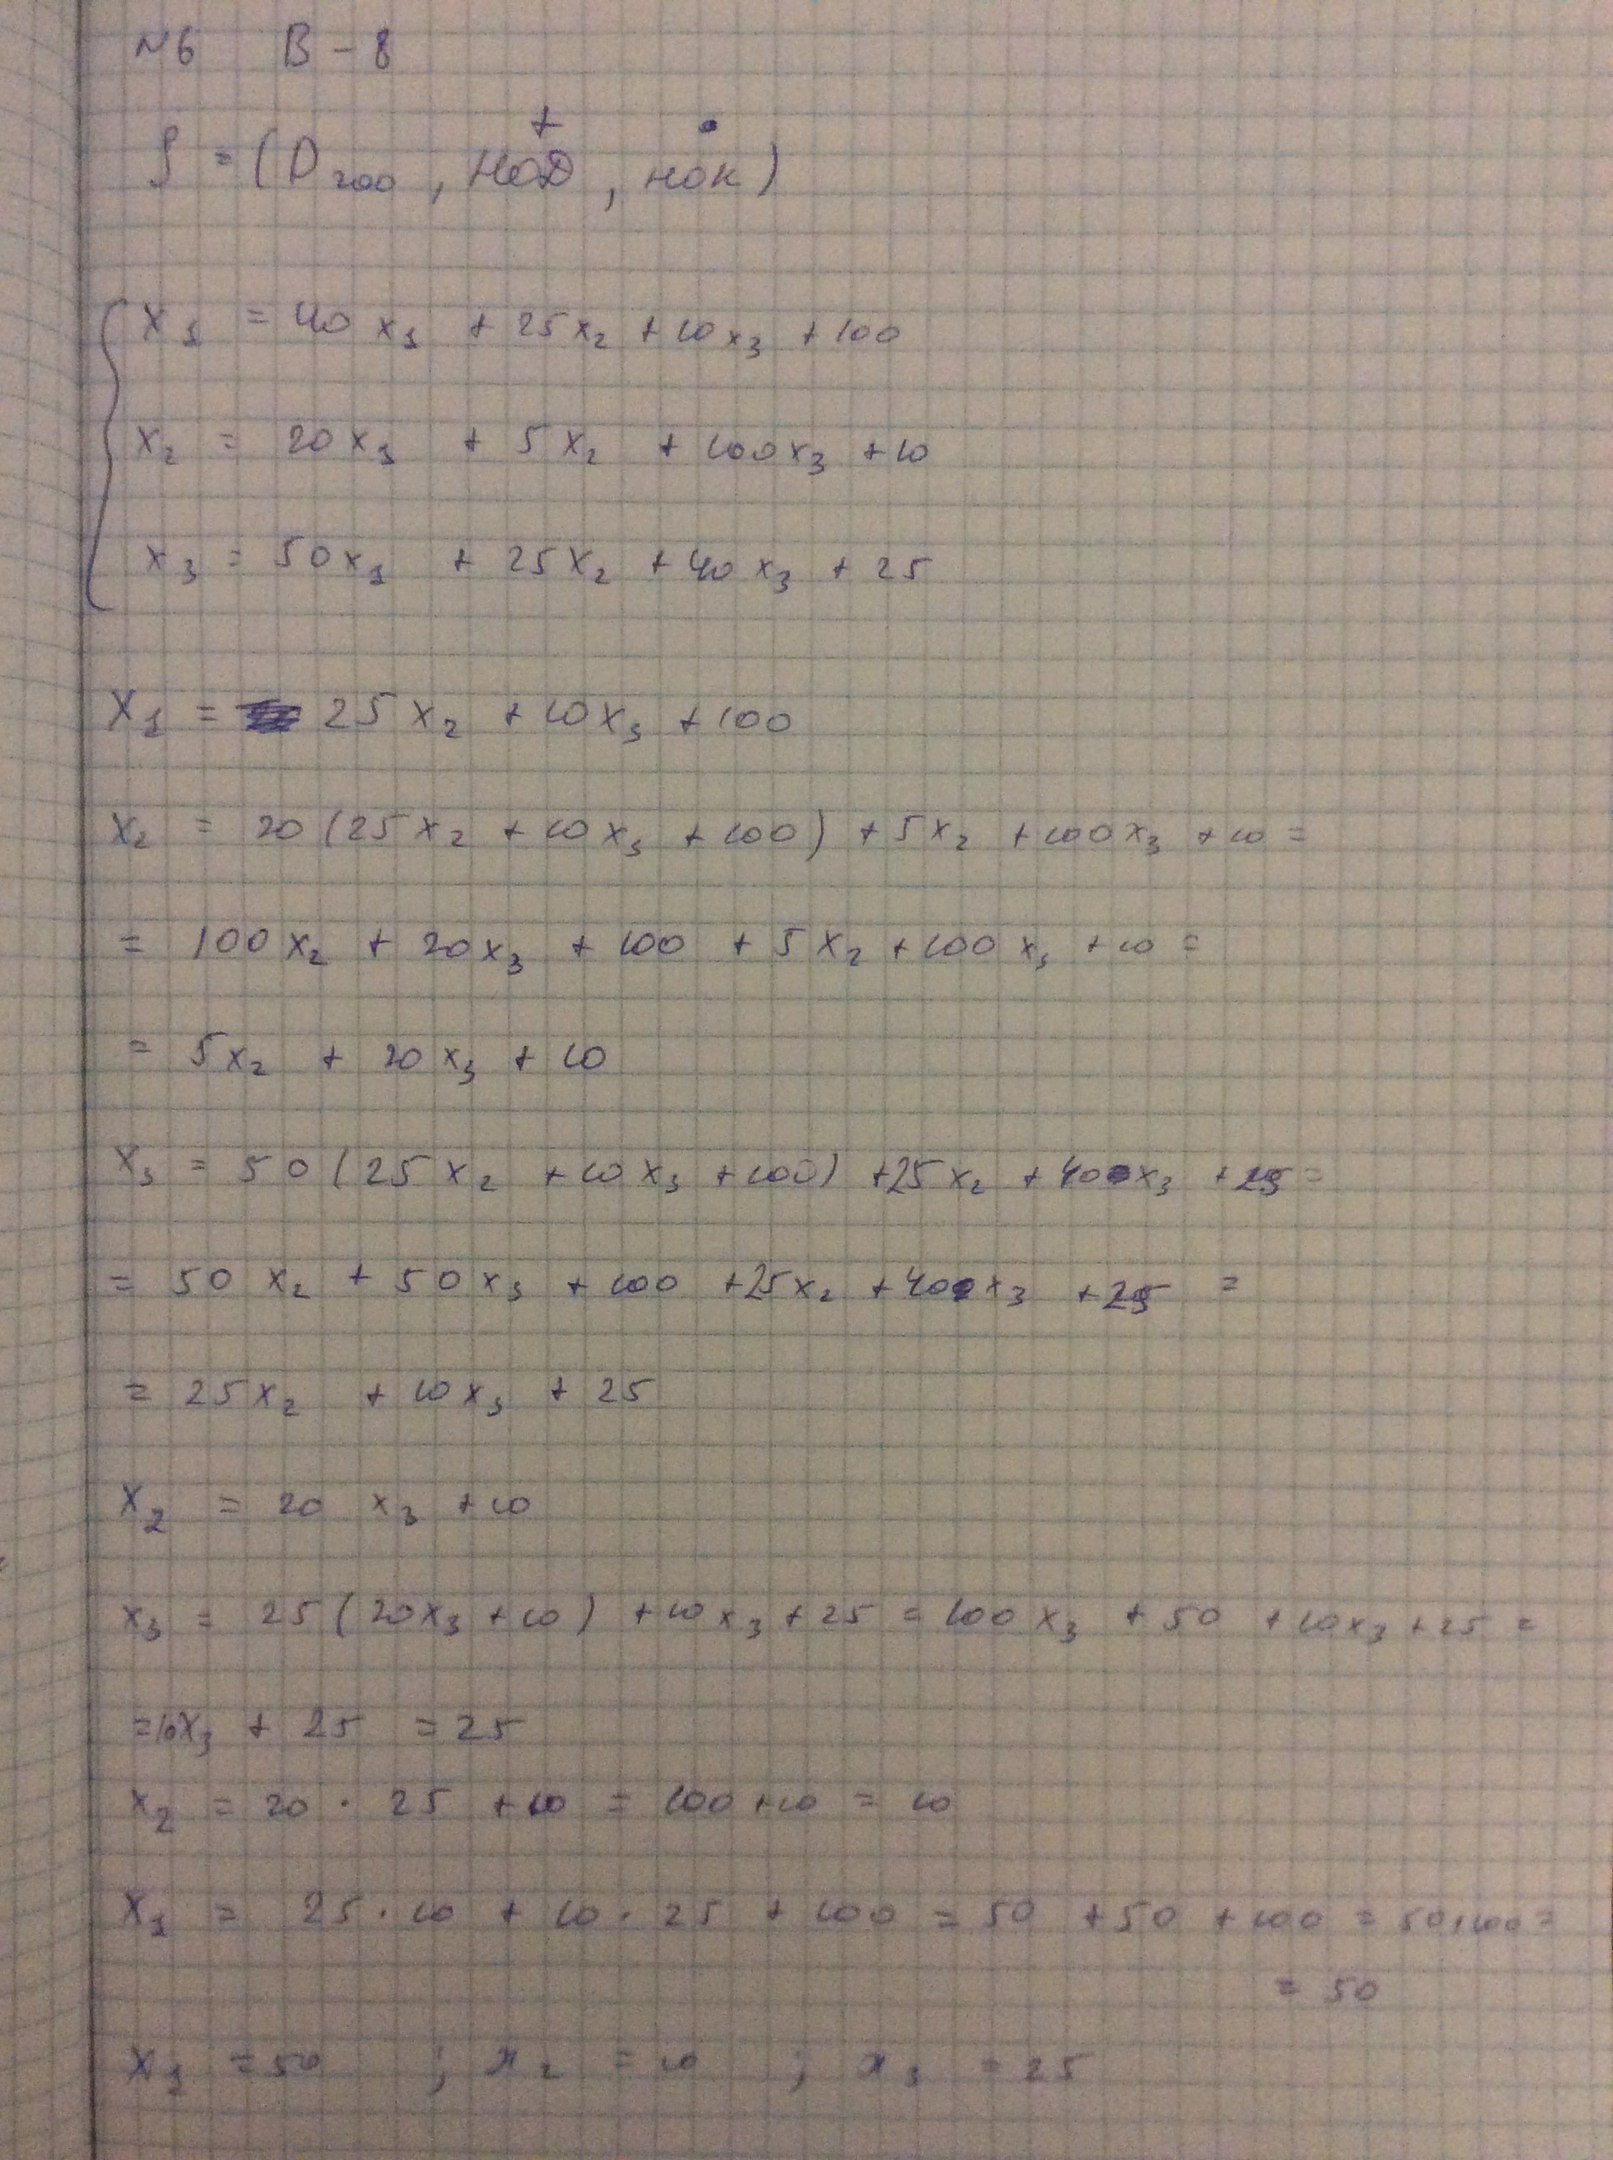 №6 В-8
+ •
S = (D₂₀₀, НОД, НОК)
x₁ = 40x₁ + 25x₂ + 10x₃ + 100
x₂ = 20x₁ + 5x₂ + 100x₃ + 10
x₃ = 50x₁ + 25x₂ + 40x₃ + 25
x₁ = 25x₂ + 10x₃ + 100
x₂ = 20(25x₂ + 10x₃ + 100) + 5x₂ + 100x₃ + 10 =
= 100x₂ + 20x₃ + 100 + 5x₂ + 100x₃ + 10 =
= 5x₂ + 20x₃ + 10
x₃ = 50(25x₂ + 10x₃ + 100) + 25x₂ + 40x₃ + 25 =
= 50x₂ + 50x₃ + 100 + 25x₂ + 40x₃ + 25 =
= 25x₂ + 10x₃ + 25
x₂ = 20x₃ + 10
x₃ = 25(20x₃ + 10) + 10x₃ + 25 = 100x₃ + 50 + 10x₃ + 25 =
= 10x₃ + 25 = 25
x₂ = 20 · 25 + 10 = 100 + 10 = 10
x₁ = 25 · 10 + 10 · 25 + 100 = 50 + 50 + 100 = 50 + 100 =
= 50
x₁ = 50 ; x₂ = 10 ; x₃ = 25